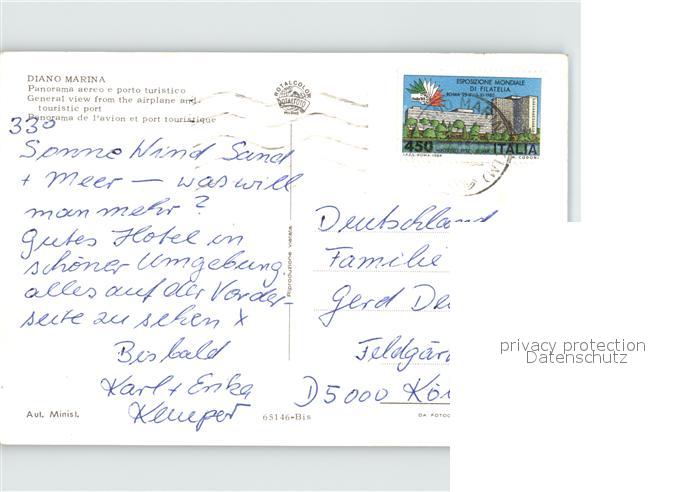 DIANO MARINA
Panorama aereo e porto turistico
General view from the airplane and
touristic port
Panorama de l'avion et port touristique
ROTALCOLOR
ROTALFOTO
ESPOSIZIONE MONDIALE
DI FILATELIA
450 ITALIA
33°
Sonne Wind Sand
+ Meer — was will
man mehr?
Gutes Hotel in
schöner Umgebung.
alles auf der Vorder-
seite zu sehen x
Bis bald
Karl + Erika
Kemper
Riproduzione vietata
Deutschland
Familie
Gerd De
Feldgär
D 5000 Köl
privacy protection
Datenschutz
Aut. Minist.
65146-Bis
DA FOTOC